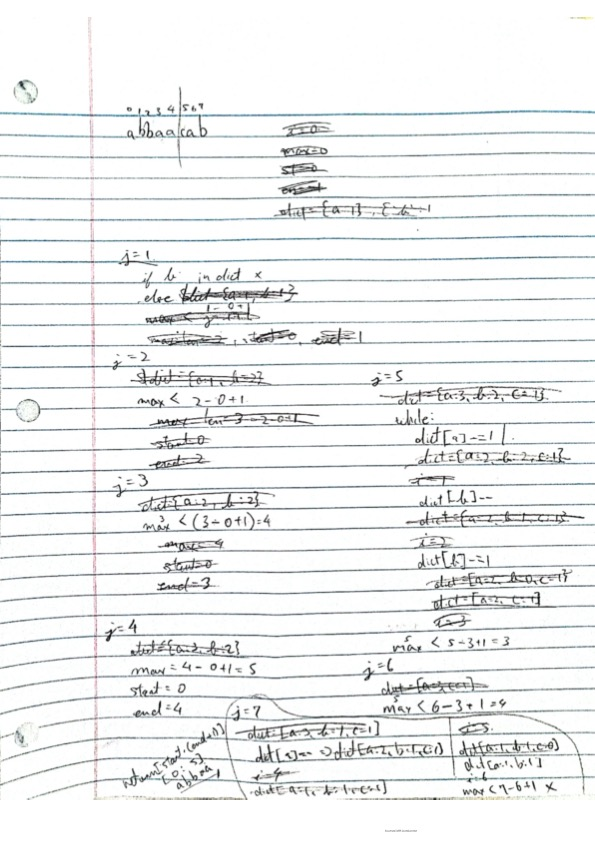 0 1 2 3 4 5 6 7
abbaacab
i=0
max=0
st=0
dict={a:1}, {'b':1
j=1
if b in dict x
else dict={a:1, b:1}
1-0+1
max <
maxlen=2, start=0, end=1
j=2
dict={a:1, b=2}
max < 2-0+1
max len=3=2-0+1
start=0
end=2
j=3
dict{a:2, b:2}
3
max < (3-0+1)=4
max=4
start=0
end=3
j=4
dict={a:3, b:2}
max=4-0+1=5
start=0
end=4
return[start,(end+1)]
[0:5]
abbaa
j=5
dict={a:3, b:2, c=1}
while:
dict[a]-=1
dict={a=2, b:2, c:1}
i=1
dict[b]--
dict={a=2, b:1, c=1}
i=2
dict[b]-=1
dict={a=2, b=0, c=1}
dict={a=2, c:1}
i=3
5
max < 5-3+1=3
j=6
dict={a=3, c=1}
5
max < 6-3+1=4
j=7
dict={a=3, b=1, c=1}
dict{a:2, b=1, c:1}
i=4
dict{a=1, b=1, c=1}
i=5
dict{a=1, b=1, c=0}
dict{a:1, b:1}
i=6
max < 7-6+1 x